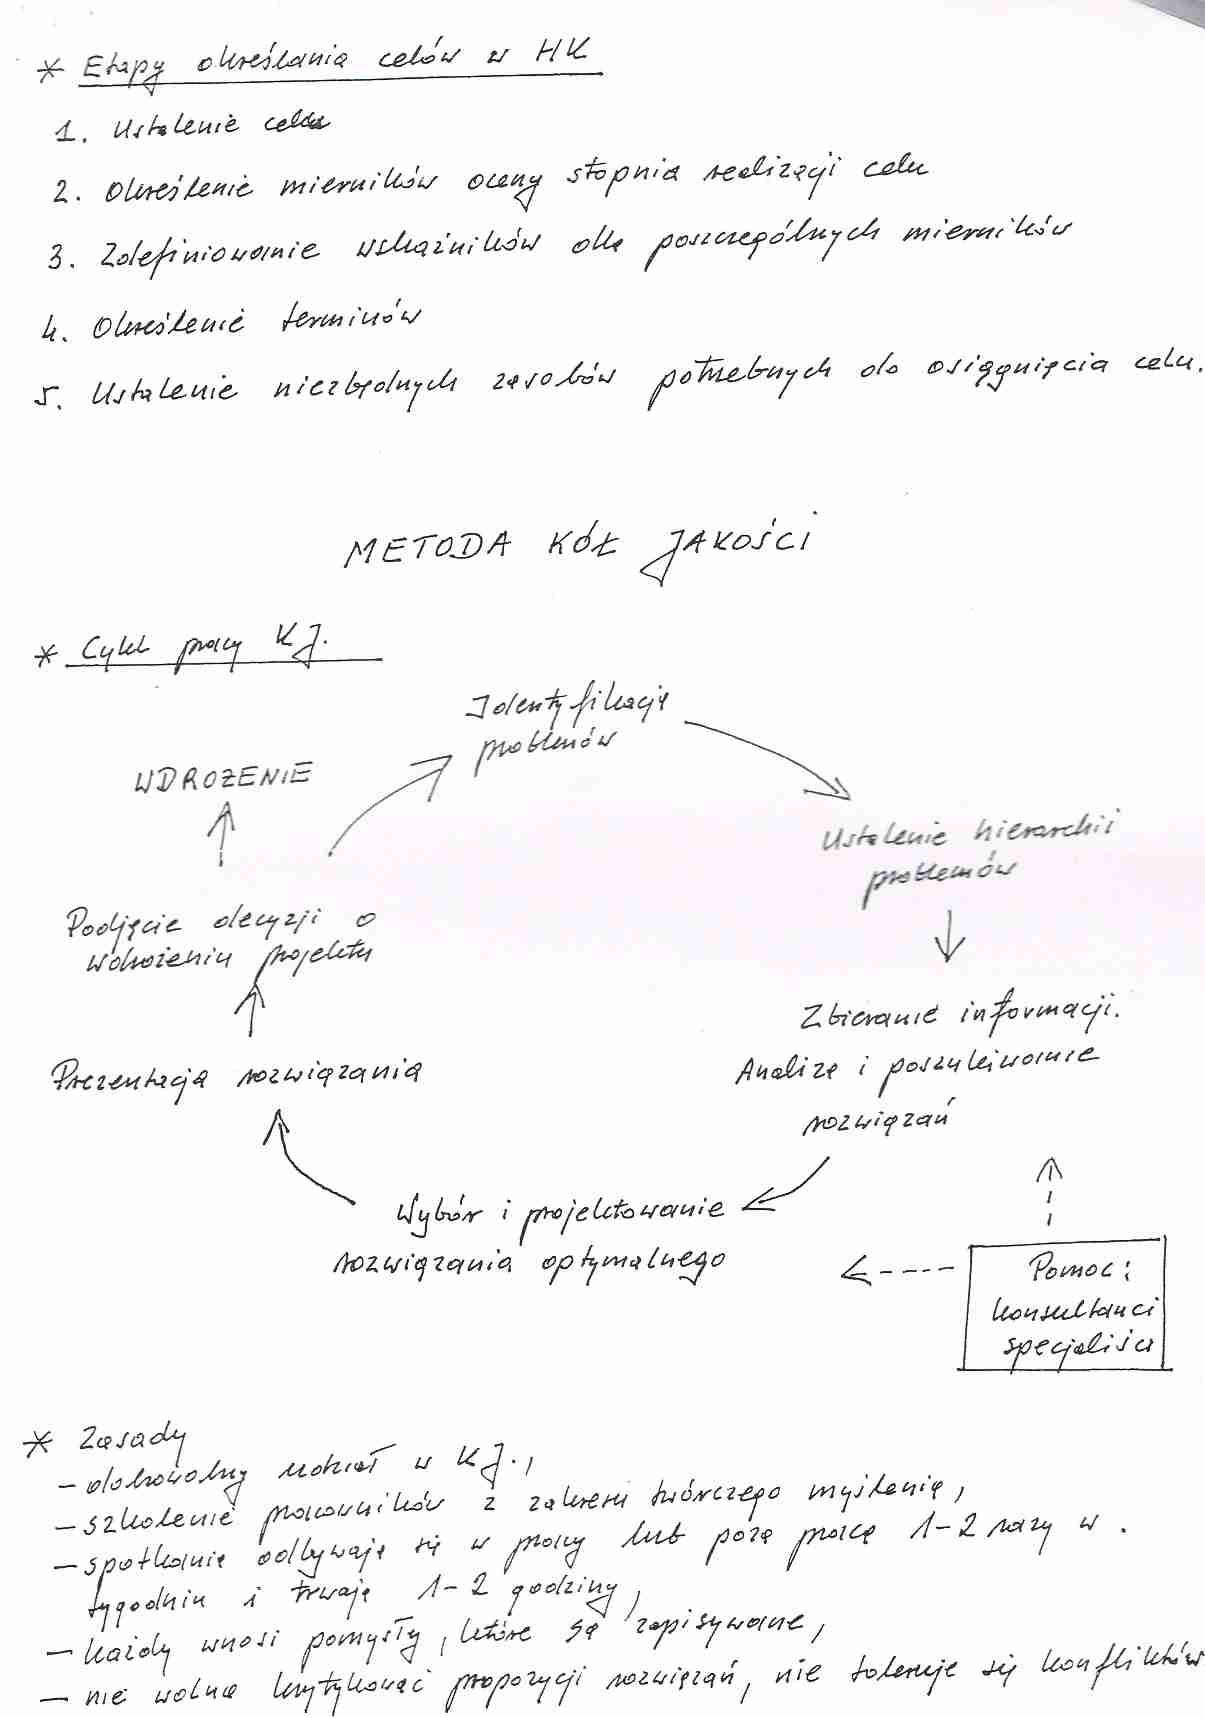 * Etapy określania celów w HK
1. Ustalenie celu
2. Określenie mierników oceny stopnia realizacji celu
3. Zdefiniowanie wskaźników dla poszczególnych mierników
4. Określenie terminów
5. Ustalenie niezbędnych zasobów potrzebnych do osiągnięcia celu.
METODA KÓŁ JAKOŚCI
* Cykl pracy KJ.
Identyfikacja
problemów
WDROŻENIE
Ustalenie hierarchii
problemów
Podjęcie decyzji o
wdrożeniu projektu
Zbieranie informacji.
Analiza i poszukiwanie
rozwiązań
Prezentacja rozwiązania
Wybór i projektowanie
rozwiązania optymalnego
Pomoc:
konsultanci
specjaliści
* Zasady
- dobrowolny udział w KJ.,
- szkolenie pracowników z zakresu twórczego myślenia,
- spotkania odbywają się w pracy lub poza pracą 1-2 razy w .
tygodniu i trwają 1-2 godziny,
- każdy wnosi pomysły, które są zapisywane,
- nie wolno krytykować propozycji rozwiązań, nie toleruje się konfliktów